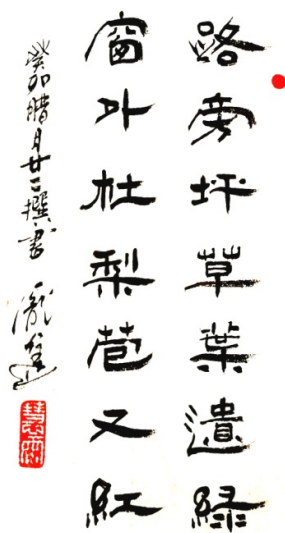 路旁坪草葉遺綠
窗外杜梨苞又紅
癸卯腊月廿二撰書